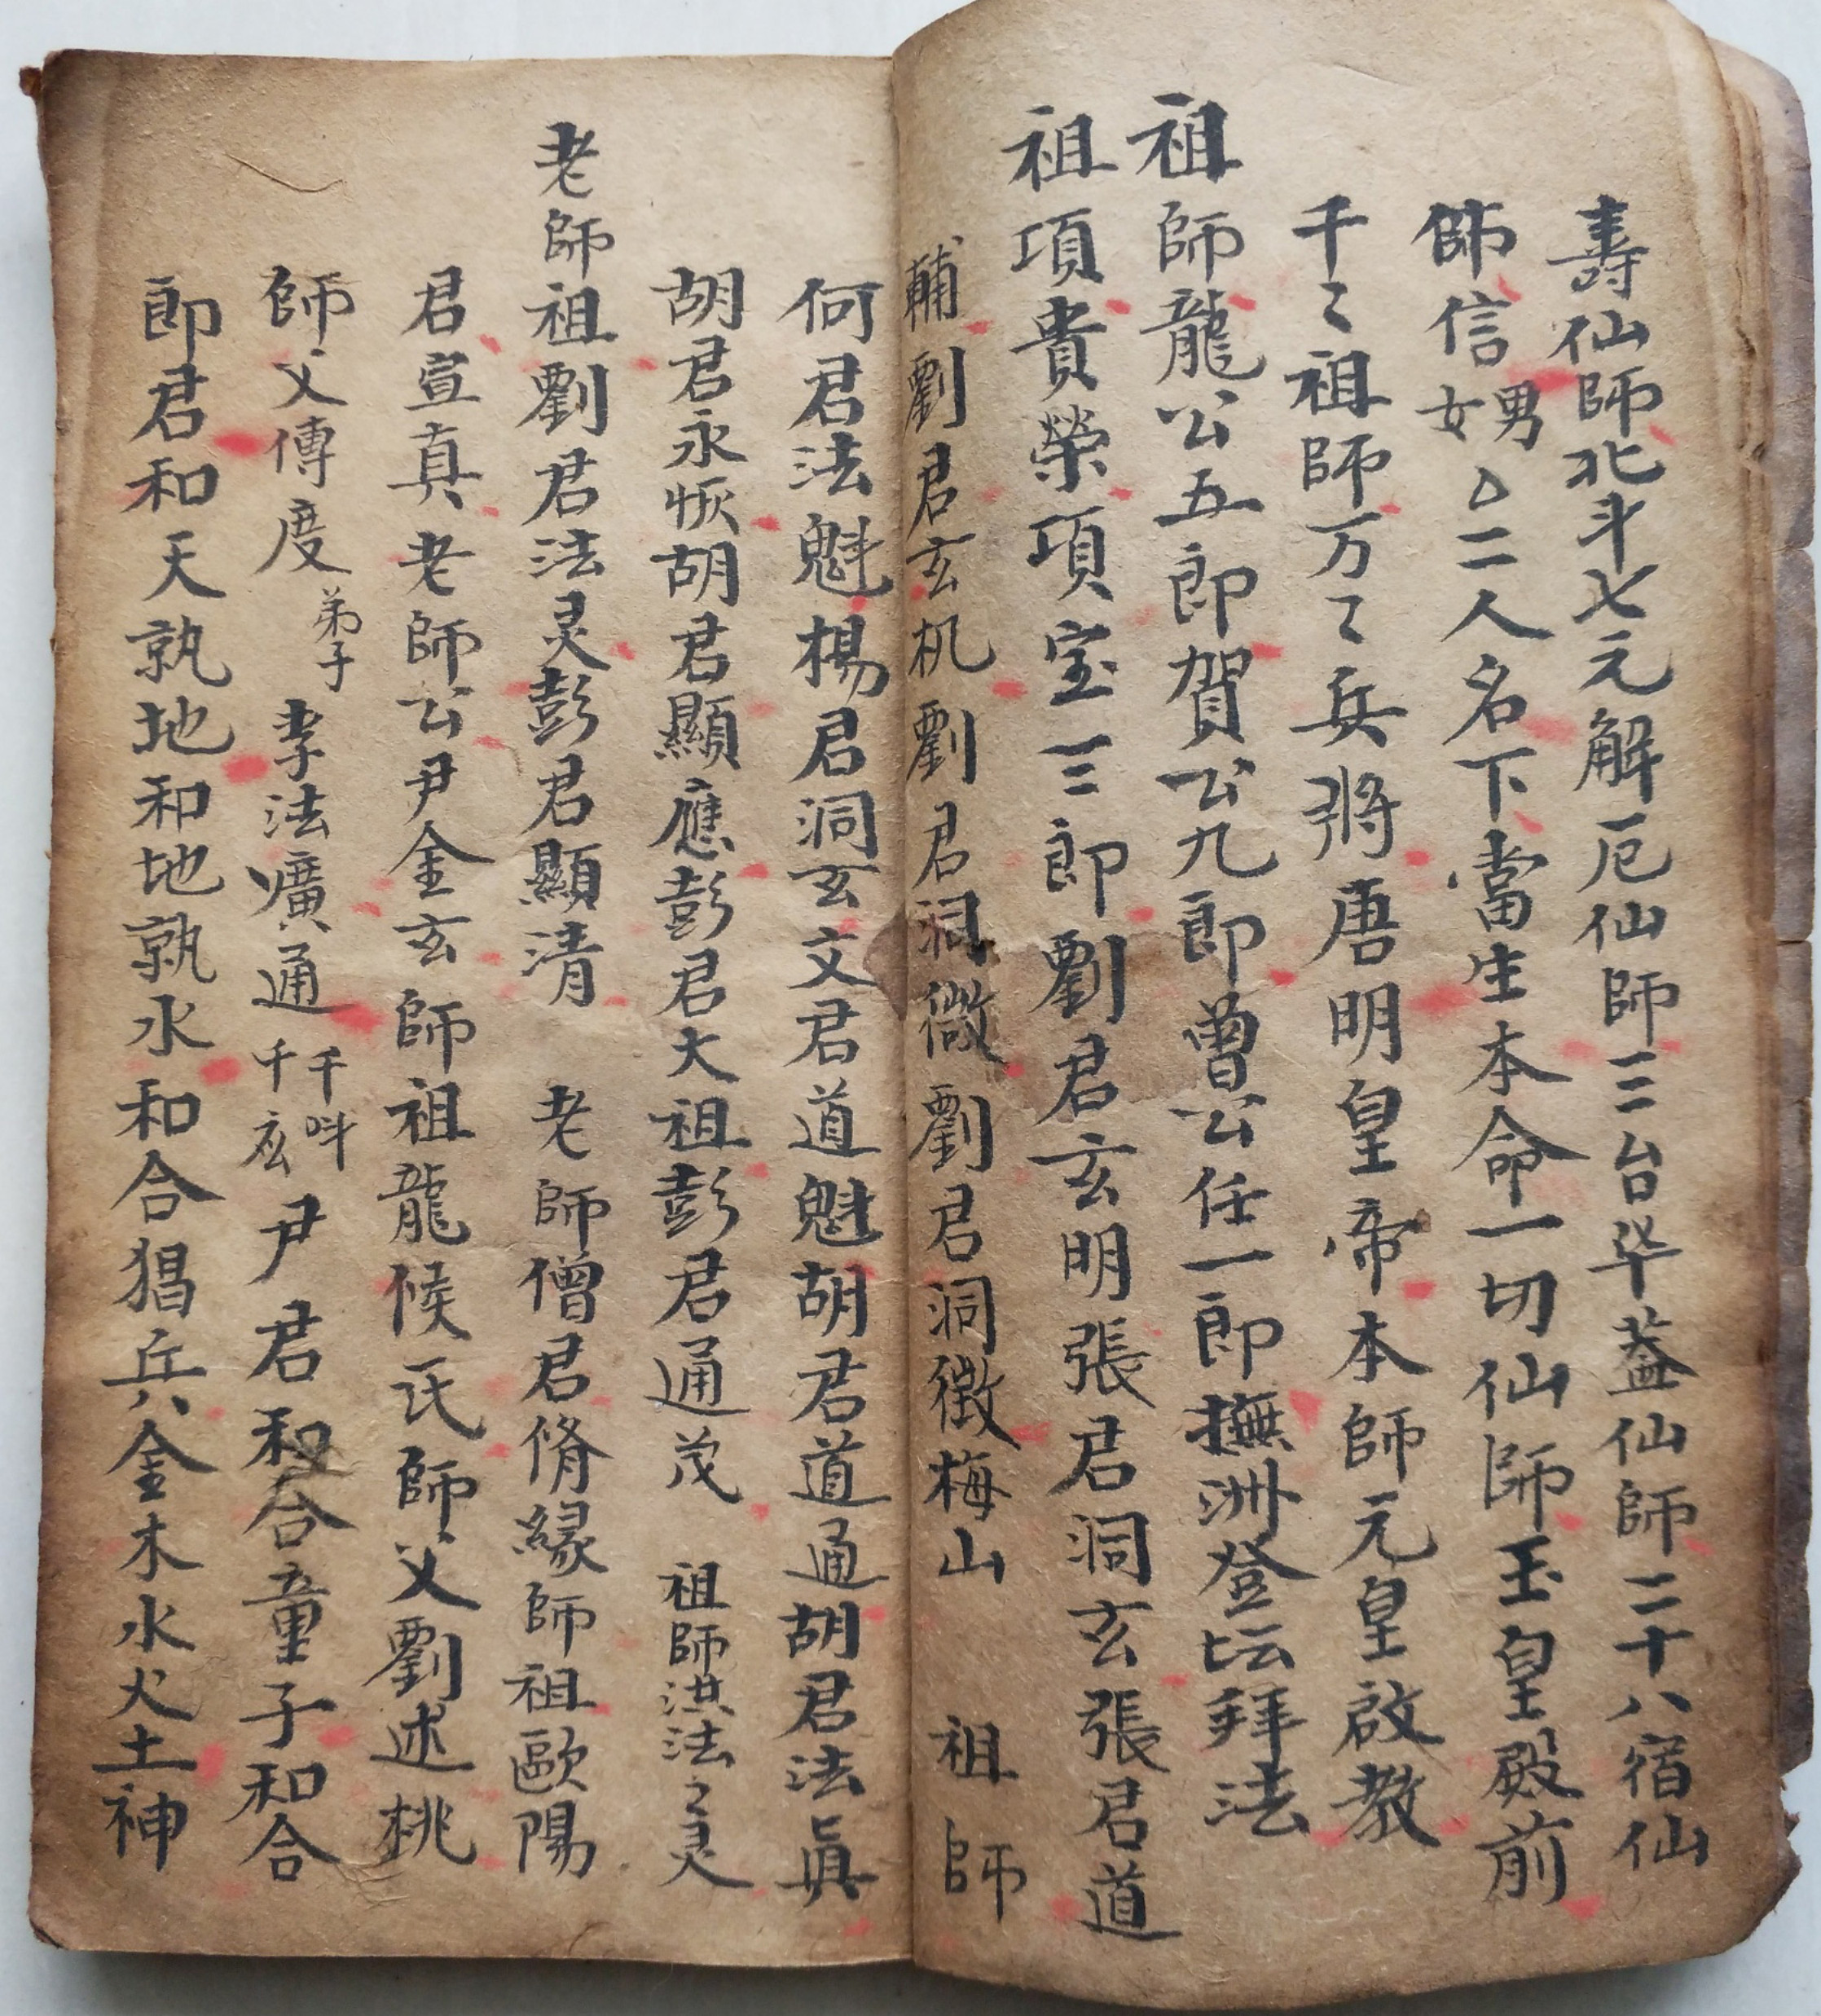 壽仙師北斗七元解厄仙師三台华蓋仙師二十八宿仙
師信男女厶二人名下當生本命一切仙師玉皇殿前
千〻祖師万〻兵將唐明皇帝本師元皇啟教
祖師龍公五郎賀公九郎曾公任一郎撫洲登坛拜法
祖項貴榮項宝三郎劉君玄明張君洞玄張君道
輔劉君玄机劉君洞微劉君洞微梅山 祖師
何君法魁楊君洞玄文君道魁胡君道通胡君法真
胡君永恢胡君顯應彭君大祖彭君通茂 祖師洪法之灵
老師祖劉君法灵彭君顯清 老師僧君脩緣師祖歐陽
君宣真老師公尹金玄師祖龍候氏師父劉述桃
師父傳度弟子李法廣通千千 尹君和合童子和合
郎君和天孰地和地孰水和合猖兵金木水火土神